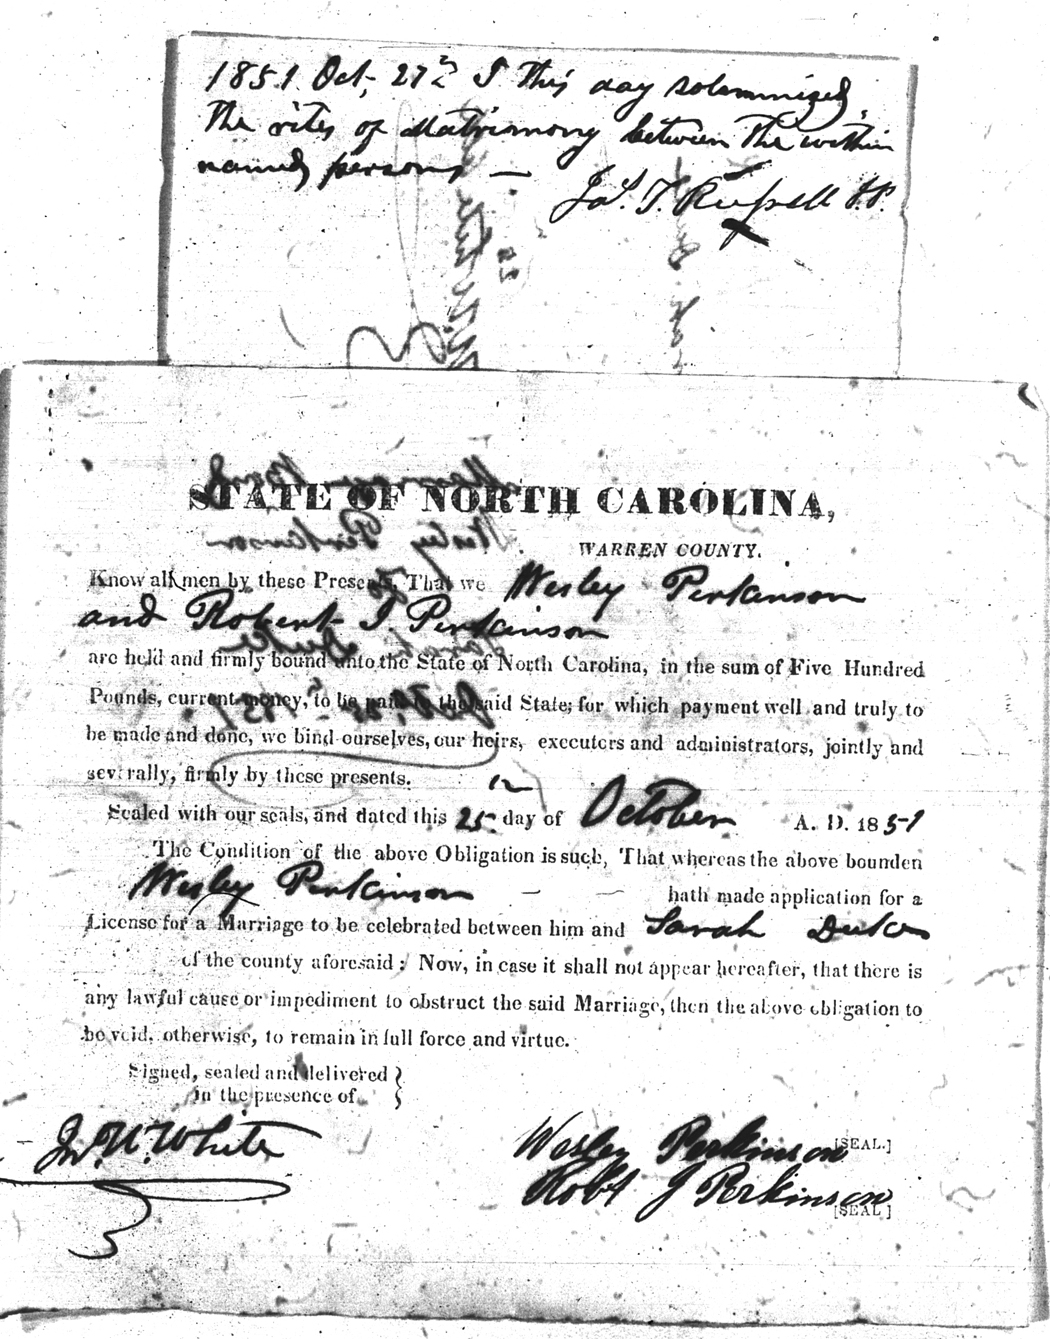 1851 Oct, 27th I this day solemnized
the rites of Matrimony between the within
named persons —
Jas. T. Russell J.P.
STATE OF NORTH CAROLINA,
WARREN COUNTY.
Know all men by these Presents, That we Wesley Perkinson
and Robert J Perkinson
are held and firmly bound unto the State of North Carolina, in the sum of Five Hundred
Pounds, current money, to be paid to the said State; for which payment well and truly to
be made and done, we bind ourselves, our heirs, executors and administrators, jointly and
severally, firmly by these presents.
Sealed with our seals, and dated this 25th day of October A. D. 1851
The Condition of the above Obligation is such, That whereas the above bounden
Wesley Perkinson — — hath made application for a
License for a Marriage to be celebrated between him and Sarah Duke
of the county aforesaid: Now, in case it shall not appear hereafter, that there is
any lawful cause or impediment to obstruct the said Marriage, then the above obligation to
be void, otherwise, to remain in full force and virtue.
Signed, sealed and delivered }
in the presence of
Jn. W. White
Wesley Perkinson [SEAL.]
Robt J Perkinson [SEAL]